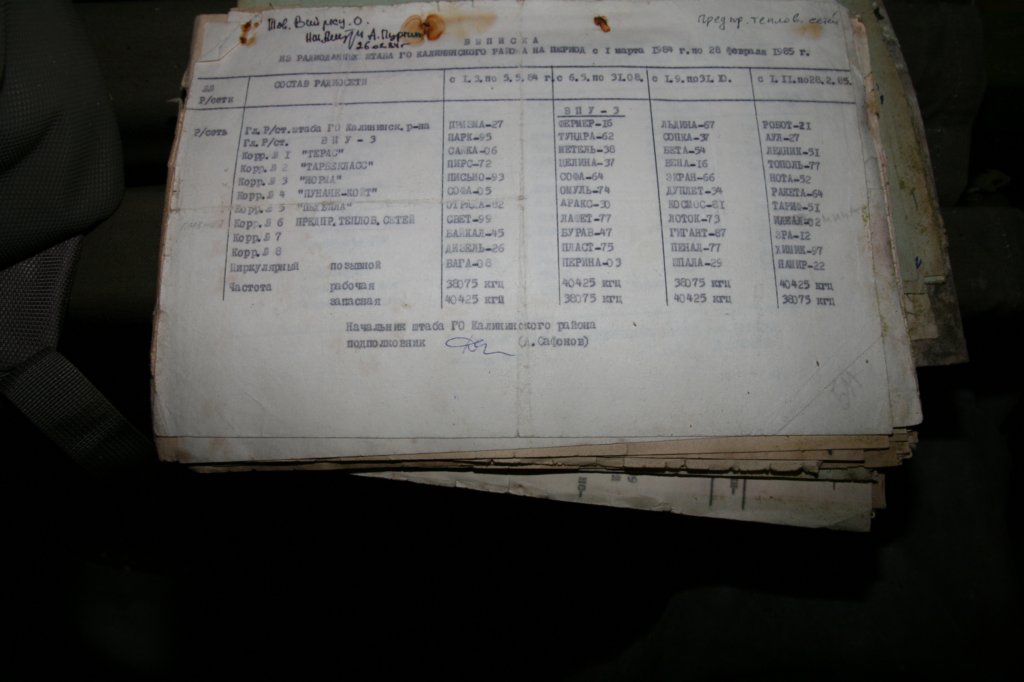 Тов.Ваймку. О.
Предпр. теплов. сетей
А. Пургин
26.02.84г
ВЫПИСКА
ИЗ РАДИОДАННЫХ ШТАБА ГО КАЛИНИНСКОГО РАЙОНА НА ПЕРИОД с 1 марта 1984 г. по 28 февраля 1985 г.
Р/сети СОСТАВ РАДИОСЕТИ с 1.3. по 5.5.84 г. с 6.5. по 31.08. с 1.9. по 31.10. с 1.11. по 28.2.85.
ВПУ-3
Р/сеть Гл. Р/ст. штаба ГО Калининск. р-на ПРИЗМА-27 ФЕРМЕР-16 ЛЬДИНА-67 РОБОТ-21
Гл. Р/ст. ВПУ-3 ПАРК-95 ТУНДРА-62 СОПКА-37 АУЛ-27
Корр.№ 1 "ТЕРАС" САЙКА-06 МЕТЕЛЬ-38 БЕТА-54 ЛЕДНИК-51
Корр.№ 2 "ТАРБЕКЛАСС" ПИРС-72 ЦЕЛИНА-37 ВЕНА-16 ТОПОЛЬ-77
Корр.№ 3 "НОРМА" ПИСЬМО-93 СОФА-64 ЭКРАН-66 НОТА-52
Корр.№ 4 "ПУНАНЕ-КОЙТ" СОФА-05 ОМУЛЬ-74 ДУПЛЕТ-34 РАКЕТА-64
Корр.№ 5 ОТРАДА-82 АРАКС-30 КОСМОС-81 ТАРИФ-51
Корр.№ 6 ПРЕДПР. ТЕПЛОВ. СЕТЕЙ СВЕТ-99 ЛАФЕТ-77 ЛОТОК-73
Корр.№ 7 БАЙКАЛ-45 БУРАВ-47 ГИГАНТ-87 ЭРА-12
Корр.№ 8 ДИЗЕЛЬ-26 ПЛАСТ-75 ПЕНАЛ-77 ХИМИК-97
Циркулярный позывной ВАГА-08 ПЕРИНА-03 ШПАЛА-29 НАПИР-22
Частота рабочая 38075 кгц 40425 кгц 38075 кгц 40425 кгц
запасная 40425 кгц 38075 кгц 40425 кгц 38075 кгц
Начальник штаба ГО Калининского района
подполковник (А.Сафонов)